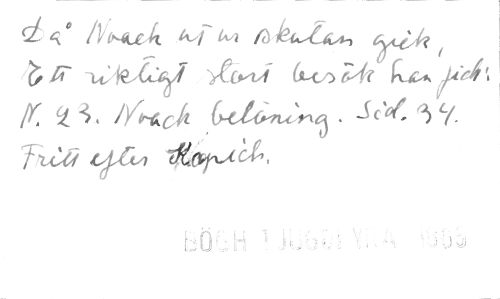 Då Noack ut ur skutan gick,
Ett riktigt stort besök han fick:
N. 23. Noack belöning. Sid. 34.
Fritt efter Kopich.
BÖGH TJUGOFYRA 1869